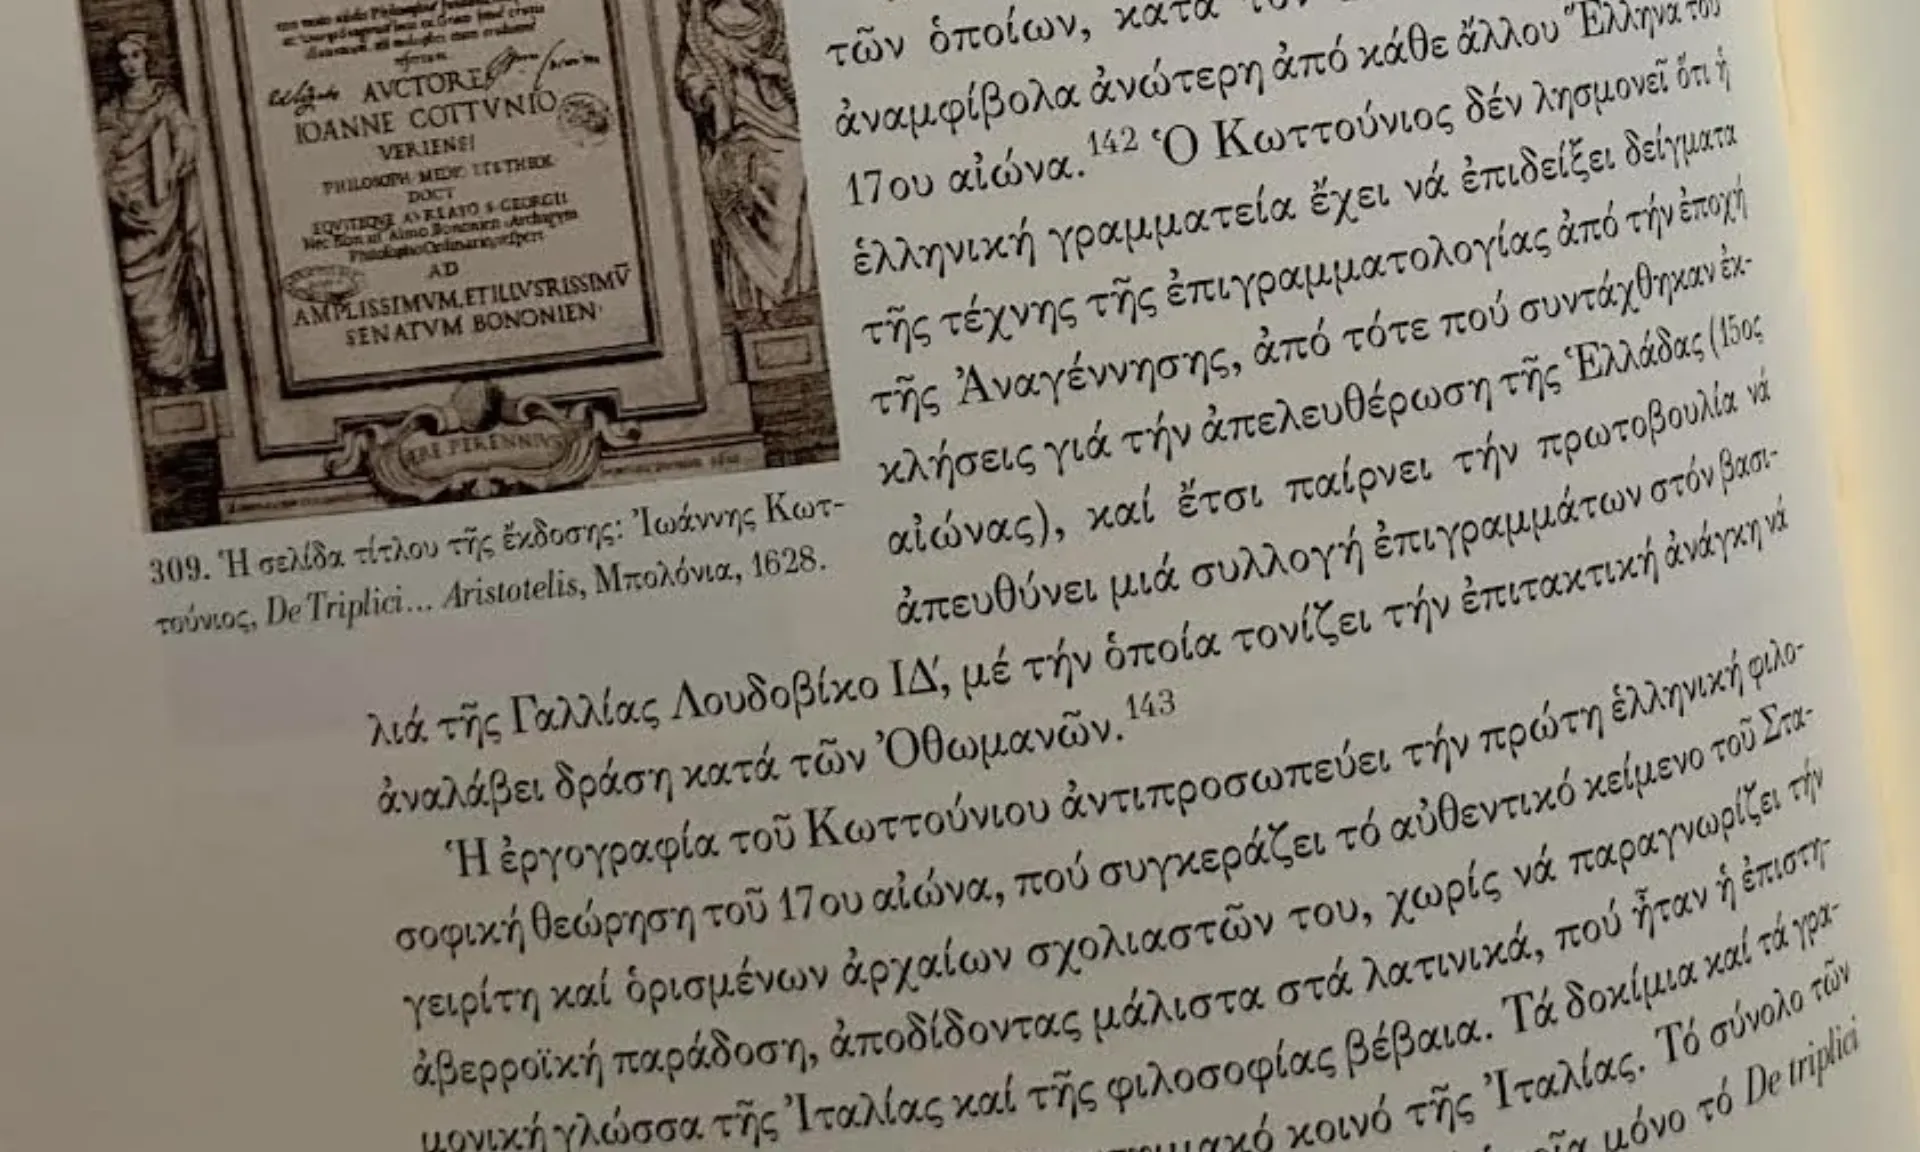 AVCTORE
IOANNE COTTVNIO
VERIENSI
PHILOSOPH. MEDIC. ET S. THEOL.
DOCT
EQVITEQVE AVREATO S. GEORGII
Nec Non in Almo Bononien. Archigym
AD
AMPLISSIMVM, ET ILLVSRISSIMV̄
SENATVM BONONIEN·
ÆRE PERENNIVS
309. Ἡ σελίδα τίτλου τῆς ἔκδοσης: Ἰωάννης Κωτ-
τούνιος, De Triplici... Aristotelis, Μπολόνια, 1628.
τῶν ὁποίων, κατά
ἀναμφίβολα ἀνώτερη ἀπό κάθε ἄλλου Ἕλληνα τοῦ
17ου αἰώνα.142 Ὁ Κωττούνιος δέν λησμονεῖ ὅτι ἡ
ἑλληνική γραμματεία ἔχει νά ἐπιδείξει δείγματα
τῆς τέχνης τῆς ἐπιγραμματολογίας ἀπό τήν ἐποχή
τῆς Ἀναγέννησης, ἀπό τότε πού συντάχθηκαν ἐκ-
κλήσεις γιά τήν ἀπελευθέρωση τῆς Ἑλλάδας (15ος
αἰώνας), καί ἔτσι παίρνει τήν πρωτοβουλία νά
ἀπευθύνει μιά συλλογή ἐπιγραμμάτων στόν βασι-
λιά τῆς Γαλλίας Λουδοβίκο ΙΔ΄, μέ τήν ὁποία τονίζει τήν ἐπιτακτική ἀνάγκη νά
ἀναλάβει δράση κατά τῶν Ὀθωμανῶν.143
Ἡ ἐργογραφία τοῦ Κωττούνιου ἀντιπροσωπεύει τήν πρώτη ἑλληνική φιλο-
σοφική θεώρηση τοῦ 17ου αἰώνα, πού συγκεράζει τό αὐθεντικό κείμενο τοῦ Στα-
γειρίτη καί ὁρισμένων ἀρχαίων σχολιαστῶν του, χωρίς νά παραγνωρίζει τήν
ἀβερροϊκή παράδοση, ἀποδίδοντας μάλιστα στά λατινικά, πού ἦταν ἡ ἐπιστη-
μονική γλώσσα τῆς Ἰταλίας καί τῆς φιλοσοφίας βέβαια. Τά δοκίμια καί τά γρα-
κοινό τῆς Ἰταλίας. Τό σύνολο τῶν
μόνο τό De triplici